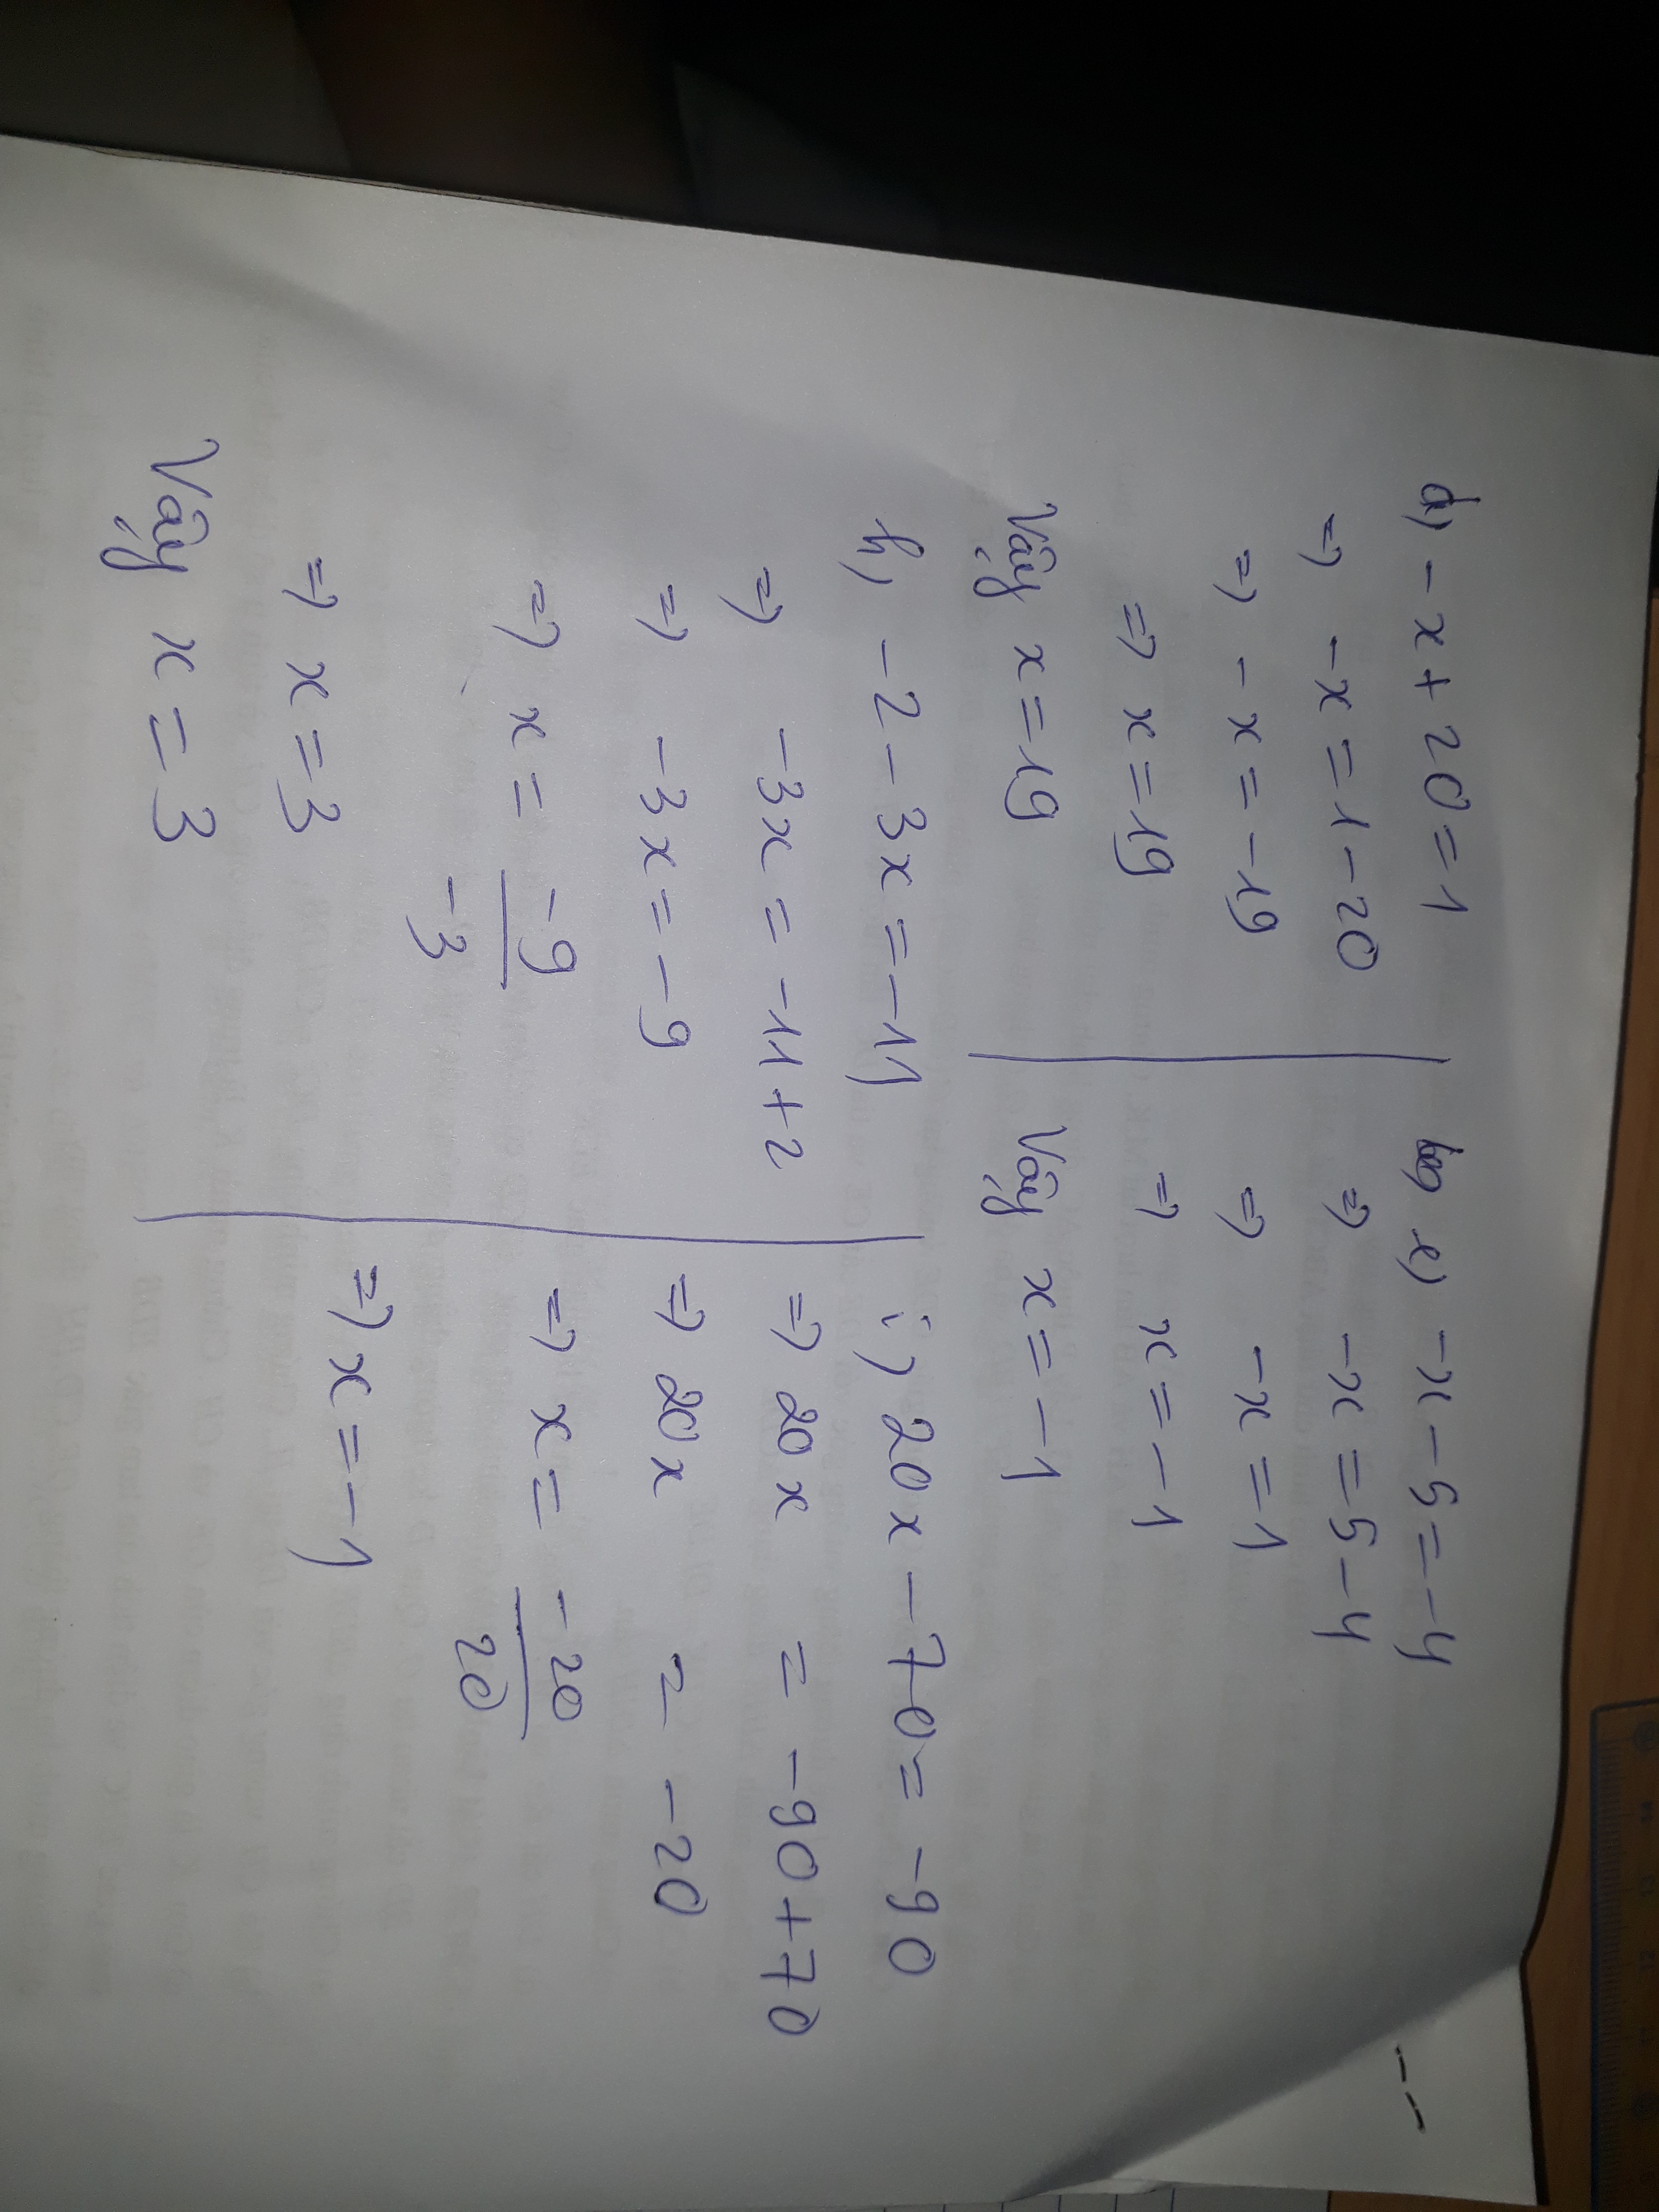 d) -x + 20 = 1
=> -x = 1 - 20
=> -x = -19
=> x = 19
Vậy x = 19
e) -x - 5 = -4
=> -x = 5 - 4
=> -x = 1
=> x = -1
Vậy x = -1
h) -2 - 3x = -11
=> -3x = -11 + 2
=> -3x = -9
=> x = -9
-3
=> x = 3
Vậy x = 3
i) 20x - 70 = -90
=> 20x = -90 + 70
=> 20x = -20
=> x = -20
20
=> x = -1